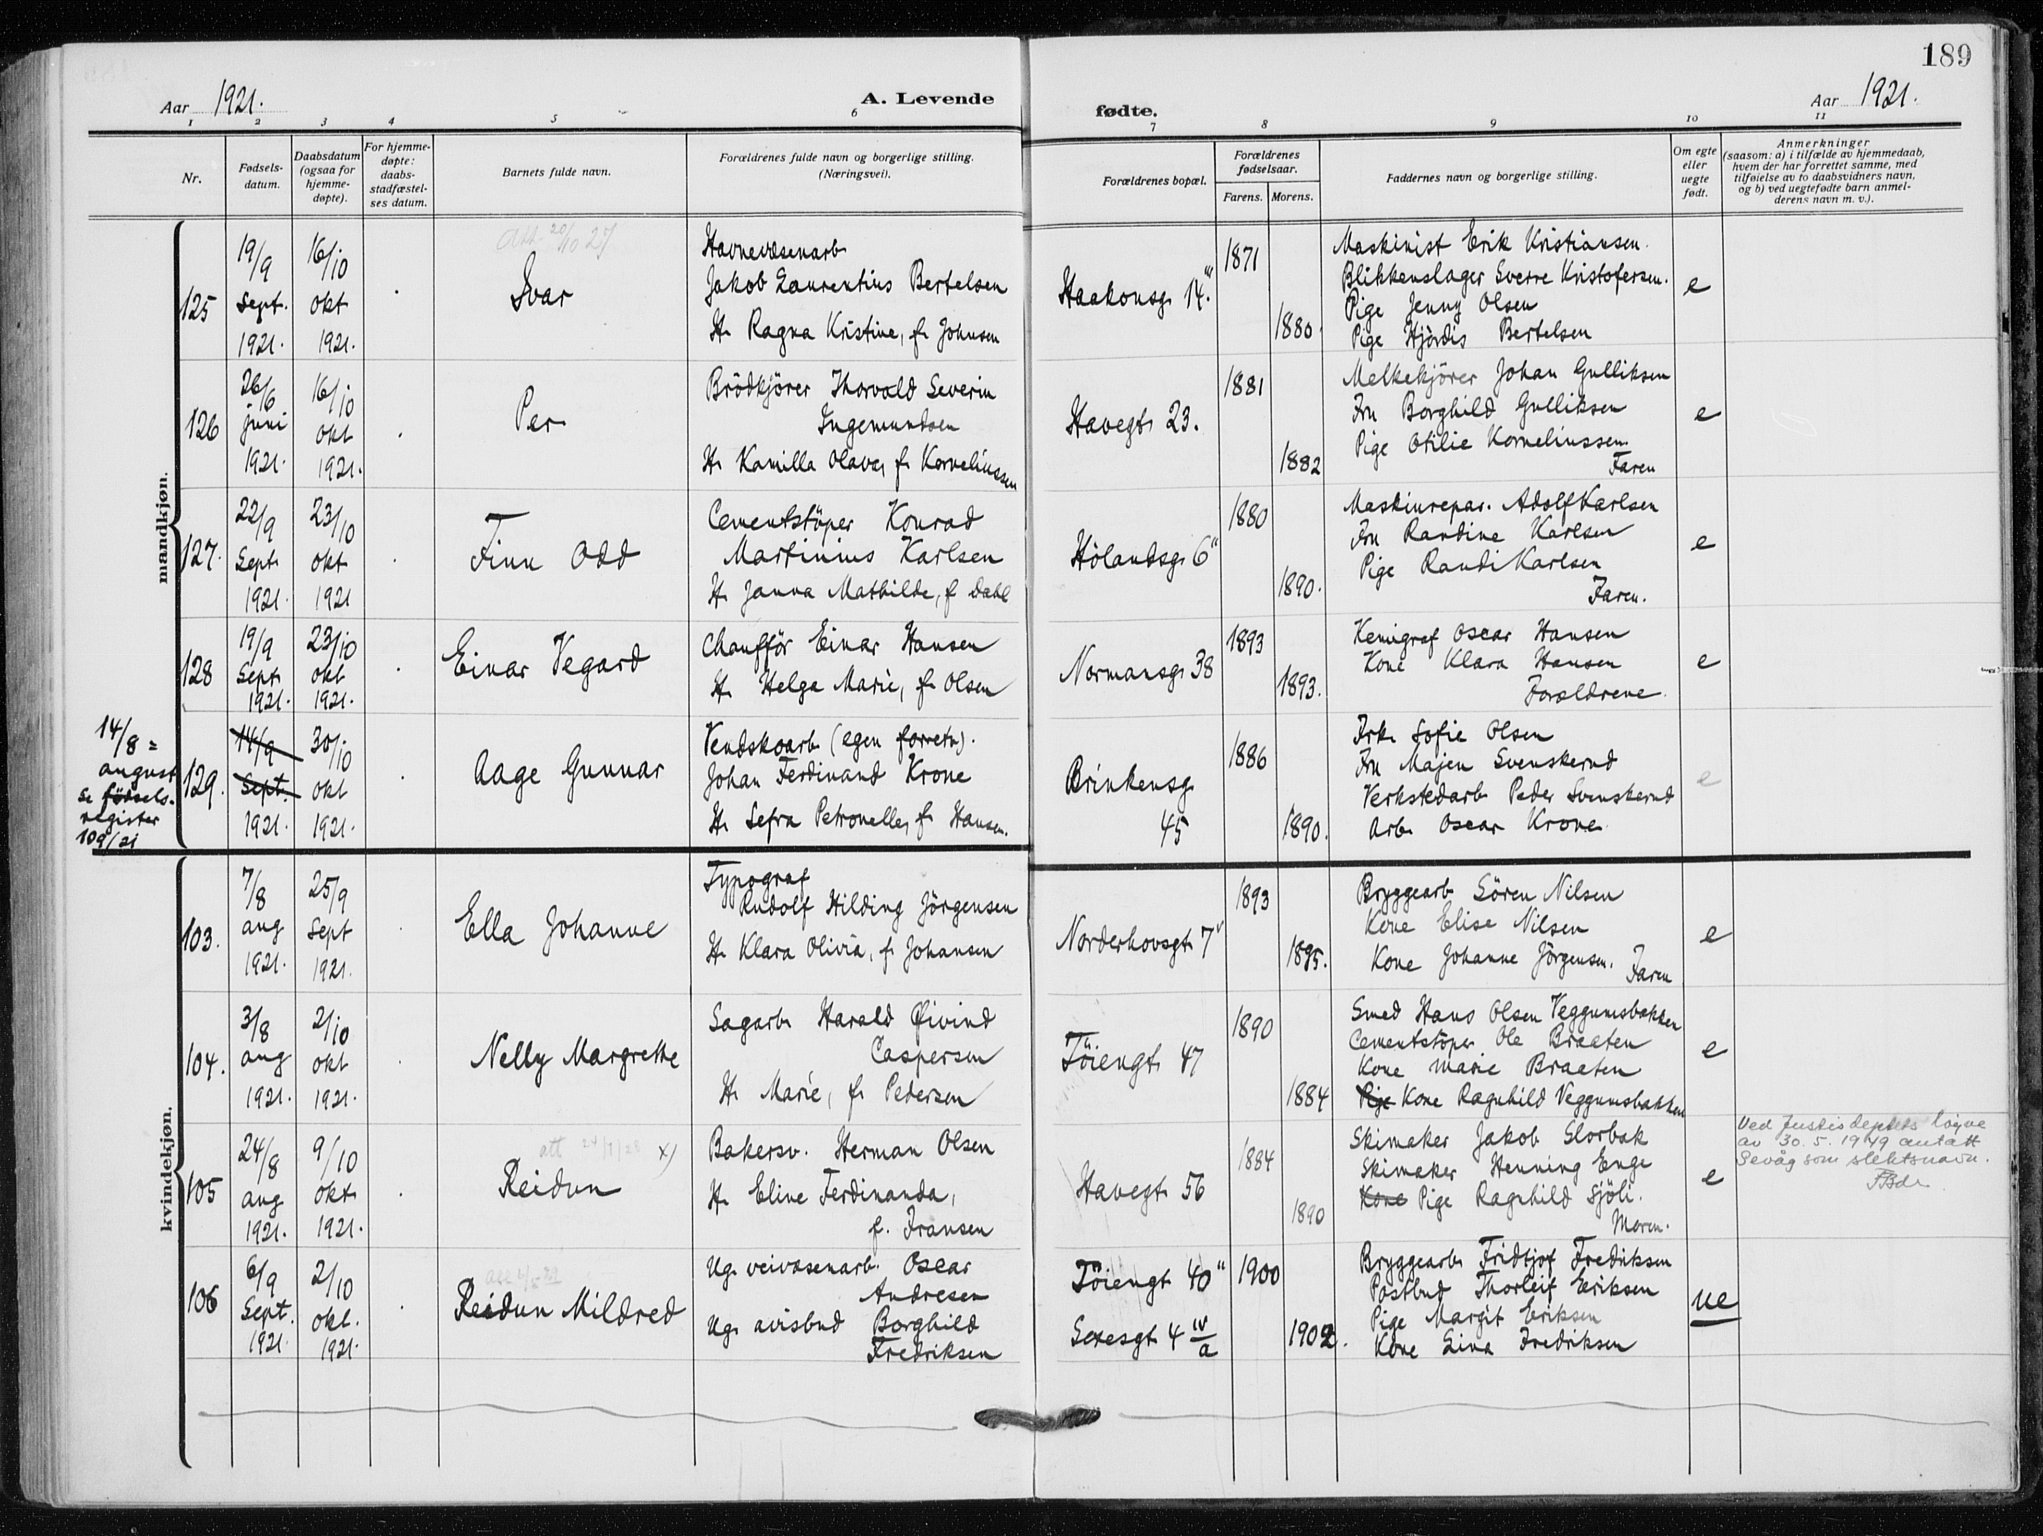 189
Aar 1921.
A. Levende
fødte.
Aar 1921.
1 2 3 4 5 6 7 8 9 10 11
Nr.
Fødsels-
datum.
Daabsdatum
(ogsaa for
hjemme-
døpte).
For hjemme-
døpte:
daabs-
stadfæstel-
ses datum.
Barnets fulde navn.
Forældrenes fulde navn og borgerlige stilling.
(Næringsvei).
Forældrenes bopæl.
Forældrenes
fødselsaar.
Farens. Morens.
Faddernes navn og borgerlige stilling.
Om egte
eller
uegte
født.
Anmerkninger
(saasom: a) i tilfælde av hjemmedaab,
hvem der har forrettet samme, med
tilføielse av to daabsvidners navn,
og b) ved uegtefødte barn anmel-
derens navn m. v.).
mandkjøn.
125
19/9
Sept.
1921.
16/10
okt
1921.
Att. 20/10 27
Ivar
Havnevæsenarb
Jakob Laurentius Bertelsen
H. Ragna Kristine, f. Johnsen
Haakonsg. 14.III
1871
1880.
Maskinist Erik Kristiansen.
Blikkenslager Sverre Kristofersen.
Pige Jenny Olsen
Pige Hjördis Bertelsen
e
126
26/6
juni
1921.
16/10
okt
1921.
Per
Brödkjörer Thorvald Severin
Ingemundsen
H. Kamilla Olava, f. Kornelinssen
Havegt. 23.
1881
1882
Melkekjörer Johan Gulliksen
Fru Borghild Gulliksen
Pige Otilie Kornelinssen.
Faren
e
127.
22/9
Sept.
1921.
23/10
okt
1921
Finn Odd
Cementstöper Konrad
Martinius Karlsen
H. Janna Mathilde, f. Dahl
Hölandsg. 6"
1880
1890.
Maskinrepar. Adolf Karlsen
Fru Randine Karlsen
Pige Randi Karlsen
Faren.
e
128
19/9
Sept.
1921.
23/10
okt
1921.
Einar Vegard
Chafför Einar Hansen
H. Helga Marie, f. Olsen
Normansg. 38
1893
1893.
Kemigraf Oscar Hansen
Kone Klara Hansen
Forældrene
e
14/8 =
august
Se fødsels-
register
109/21
129.
14/9
Sept.
1921.
30/10
okt
1921.
Aage Gunnar
Vendskoarb. (egen forretn).
Johan Ferdinand Krone
H. Sefra Petronelle, f. Hansen.
Brinkensg.
45
1886
1890.
Frk. Sofie Olsen
Fru Majen Svenskerud
Verkstedarb. Peder Svenskerud
Arb. Oscar Krone.
e
kvindekjøn.
103.
7/8
aug
1921.
25/9
Sept
1921.
Ella Johanne
Typograf
Rudolf Hilding Jörgensen
H. Klara Olivia, f. Johansen
Norderhovsgt. 7"
1893
1895.
Bryggearb. Sören Nilsen
Kone Elise Nilsen
Kone Johanne Jörgensen. Faren
e
104.
3/8
aug
1921.
2/10
okt
1921.
Nelly Margrethe
Sagarb. Harald Öivind
Caspersen
H. Marie, f. Pedersen
Töiengt. 47
1890
1884
Smed Hans Olsen Veggumsbakken
Cementstöper Ole Braaten
Kone Marie Braaten
Pige Kone Ragnhild Veggumsbakken
e
105
24/8
aug
1921.
9/10
okt.
1921.
att 24/1/28 x)
Reidun
Bakersv. Herman Olsen
H. Eline Ferdinanda,
f. Fransen
Havegt. 56
1884
1890
Skimaker Jakob Slorbak
Skimaker Henning Enge
Kone Pige Ragnhild Sjöli.
Moren.
e
Ved Justisdeptets løyve
av 30.5.1949 antatt
Sevåg som slektsnavn.
106
6/9
Sept.
1921.
2/10
okt.
1921.
Reidun Mildred
Ug. veivæsenarb. Oscar
Andresen
Ug. avisbud Borghild
Fredriksen
Töiengt. 40"
Sexesgt. 4 IV/a
1900
1902.
Bryggearb. Fridtjof Fredriksen
Postbud Thorleif Eriksen
Pige Margit Eriksen
Kone Lina Fredriksen
ue